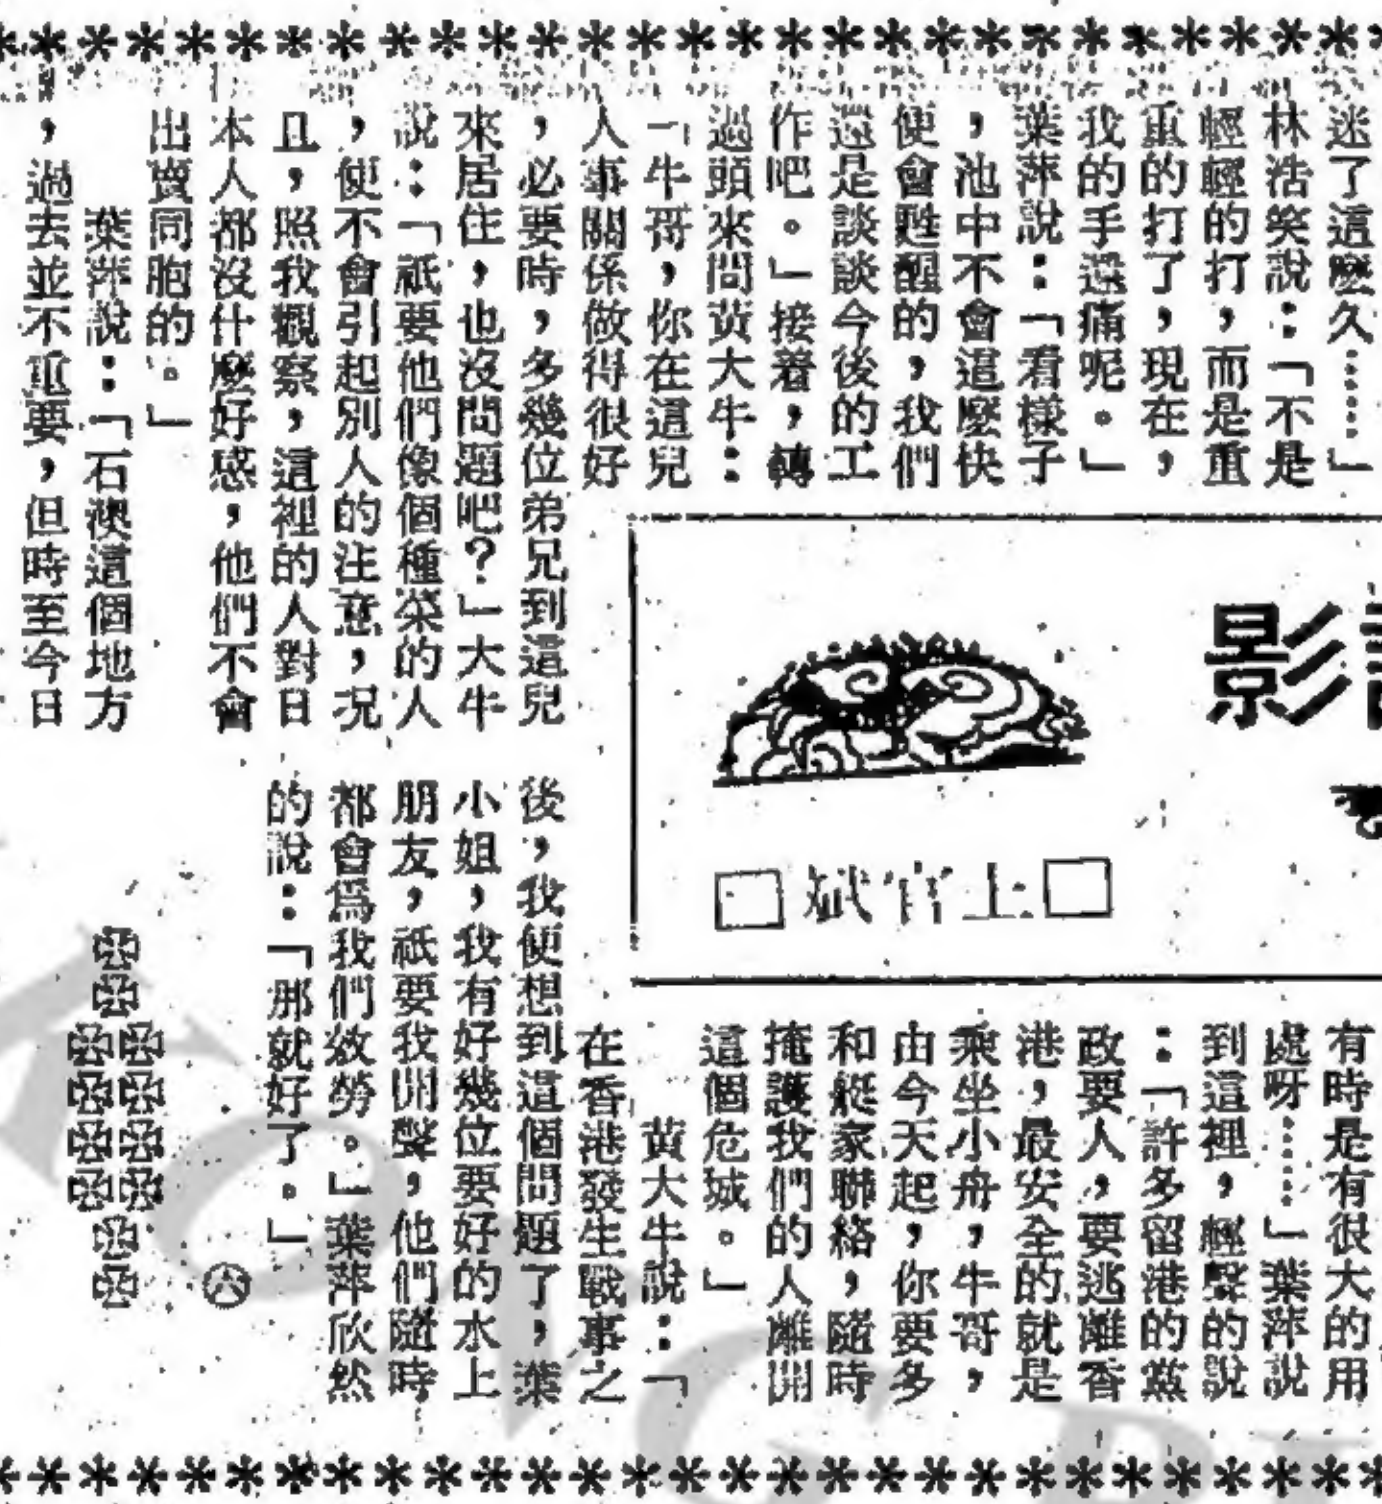 迷了這麼久……」
林浩笑說：「不是
輕輕的打，而是重
重的打了，現在，
我的手還痛呢。」
葉萍說：「看樣子
，池中不會這麼快
便會甦醒的，我們
還是談談今後的工
作吧。」接着，轉
過頭來問黃大牛：
「牛哥，你在這兒
人事關係做得很好
，必要時，多幾位弟兄到這兒
來居住，也沒問題吧？」大牛
說：「祇要他們像個種菜的人
，便不會引起別人的注意，況
且，照我觀察，這裡的人對日
本人都沒什麼好感，他們不會
出賣同胞的。」
葉萍說：「石澳這個地方
，過去並不重要，但時至今日
影
□上官斌□
有時是有很大的用
處呀……」葉萍說
到這裡，輕聲的說
：「許多留港的黨
政要人，要逃離香
港，最安全的就是
乘坐小舟，牛哥，
由今天起，你要多
和艇家聯絡，隨時
掩護我們的人離開
這個危城。」
黃大牛說：「
在香港發生戰事之
後，我便想到這個問題了，葉
小姐，我有好幾位要好的水上
朋友，祇要我開聲，他們隨時
都會爲我們效勞。」葉萍欣然
的說：「那就好了。」
㊅
KONG